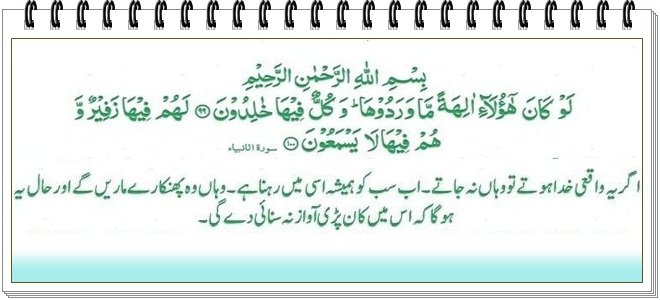 بِسْمِ اللهِ الرَّحْمٰنِ الرَّحِيْمِ
لَوْ كَانَ هٰٓؤُلَآءِ اٰلِهَةً مَّا وَرَدُوْهَا ؕ وَ كُلٌّ فِيْهَا خٰلِدُوْنَ ﴿۹۹﴾ لَهُمْ فِيْهَا زَفِيْرٌ وَّ
هُمْ فِيْهَا لَا يَسْمَعُوْنَ ﴿۱۰۰﴾ سورۃ الانبیاء
اگر یہ واقعی خدا ہوتے تو وہاں نہ جاتے۔ اب سب کو ہمیشہ اسی میں رہنا ہے۔ وہاں وہ پھنکارے ماریں گے اور حال یہ
ہوگا کہ اس میں کان پڑی آواز نہ سنائی دے گی۔